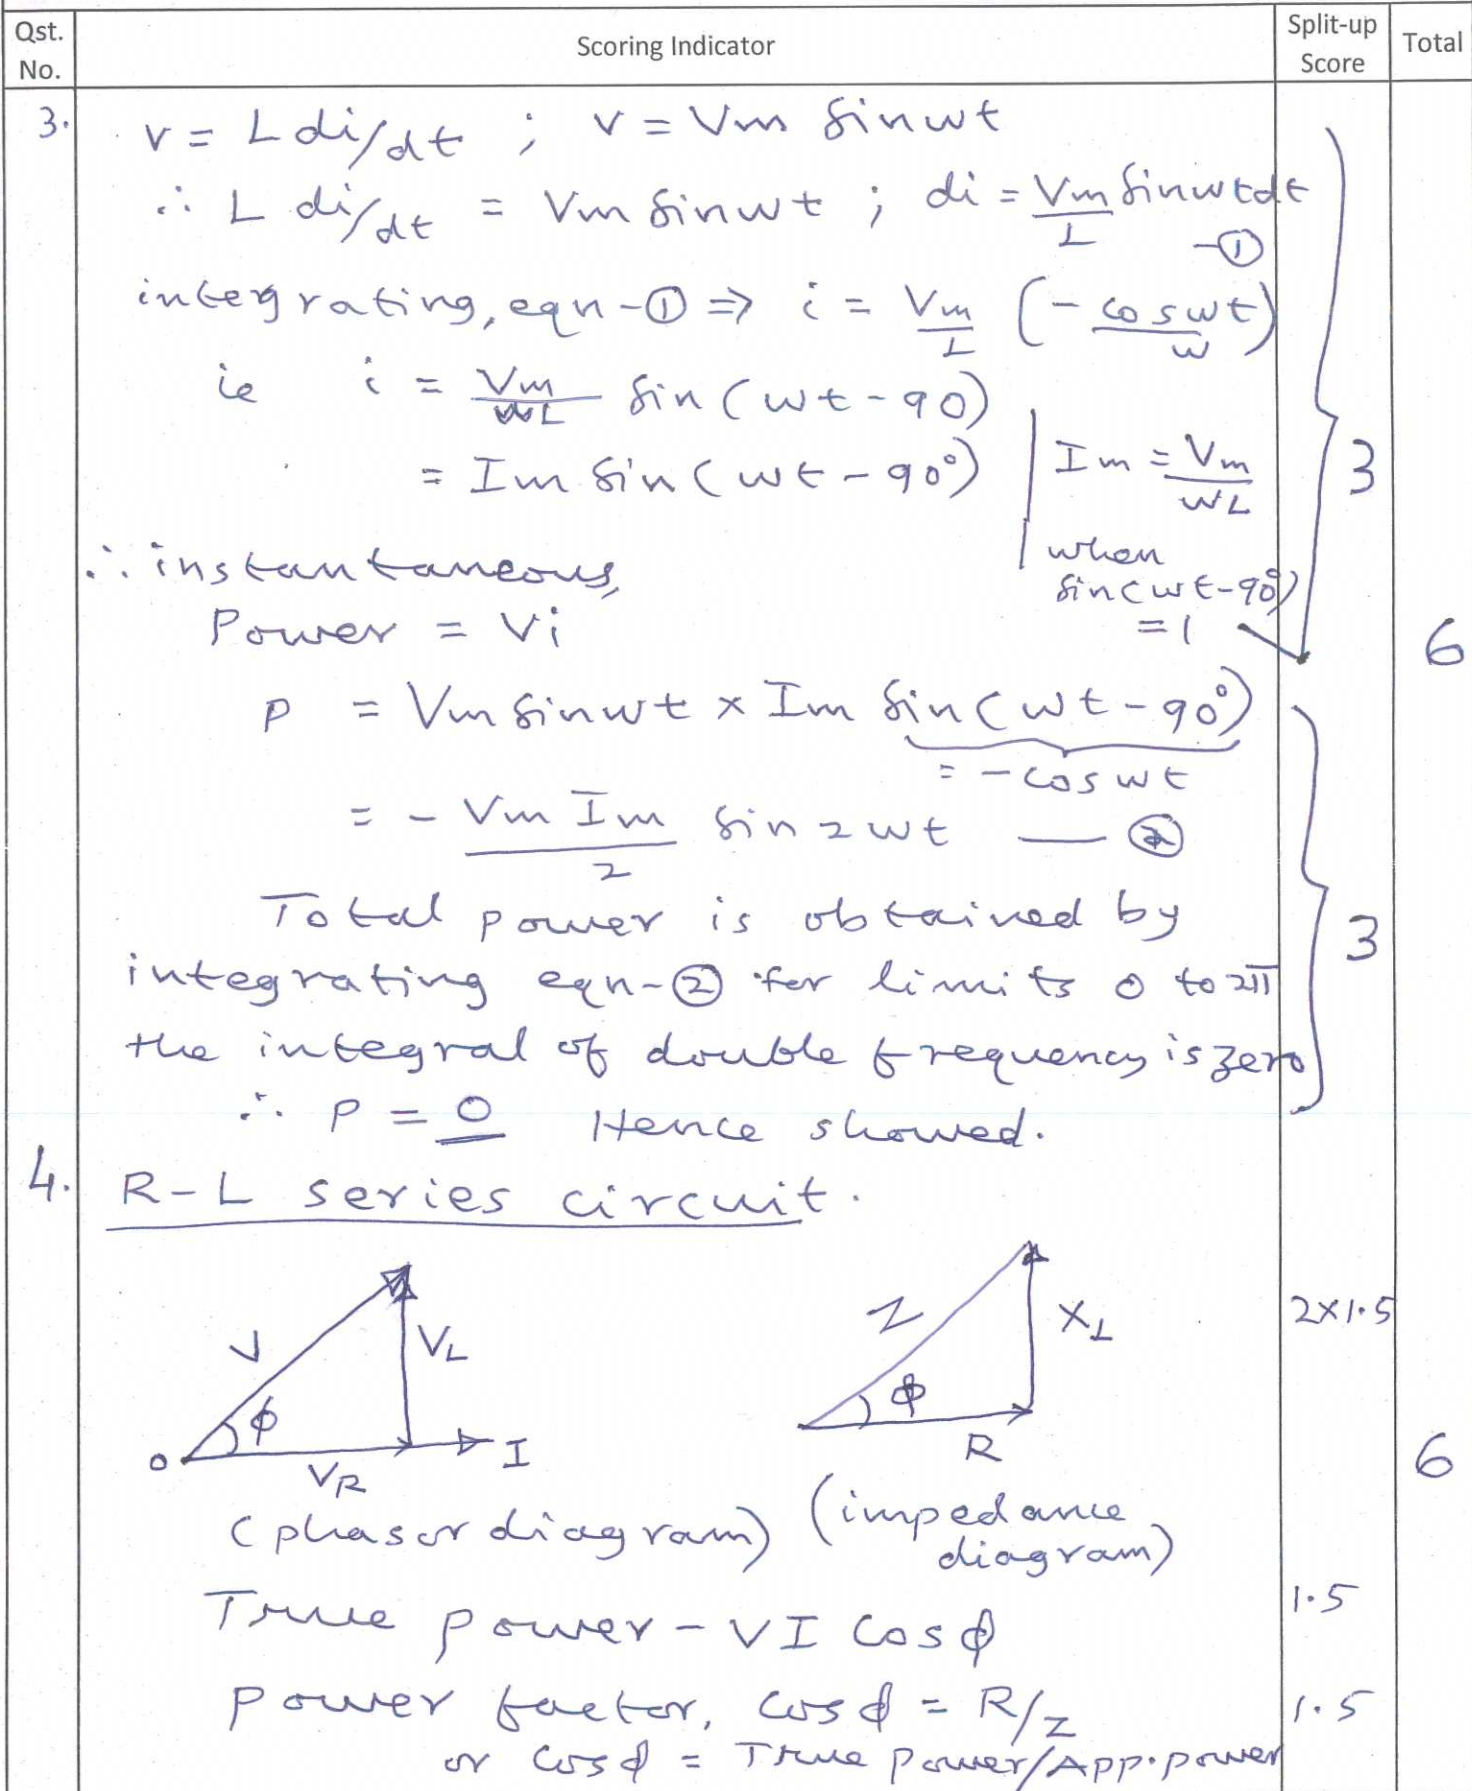 Qst. No. Scoring Indicator Split-up Score Total
3. v = L di/dt ; v = Vm sinwt
∴ L di/dt = Vm sinwt ; di = Vm/L sinwtdt
-①
intergrating, eqn-① ⇒ i = Vm/L (- coswt/w)
ie i = Vm/WL sin(wt-90)
= Im sin(wt-90°) | Im = Vm/WL
when
∴ instantaneous,
sin(wt-90°)
Power = Vi
= 1
3
6
P = Vm sinwt x Im sin(wt-90°)
= - cos wt
= - Vm Im/2 sin 2wt — ②
Total power is obtained by
3
integrating eqn-② for limits 0 to 2π
the integral of double frequency is zero
∴ P = 0 Hence showed.
4. R-L series circuit.
V VL φ O VR I
Z XL φ R
2x1.5
6
(phasor diagram) (impedance diagram)
True power - VI cosφ 1.5
Power factor, cosφ = R/Z 1.5
or cosφ = True power/App.power